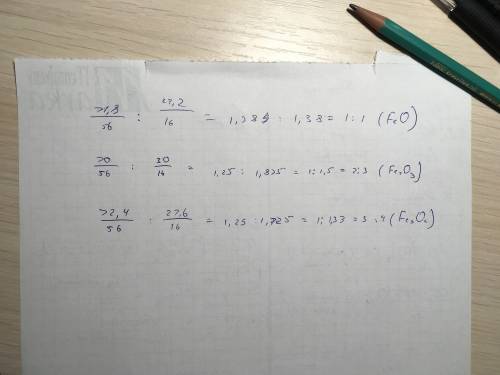 77,8/56 : 22,2/16 = 1,389 : 1,38 = 1 : 1 (FeO)
70/56 : 30/16 = 1,25 : 1,875 = 1 : 1,5 = 2 : 3 (Fe₂O₃)
72,4/56 : 27,6/16 = 1,25 : 1,725 = 1 : 1,33 = 3 : 4 (Fe₃O₄)